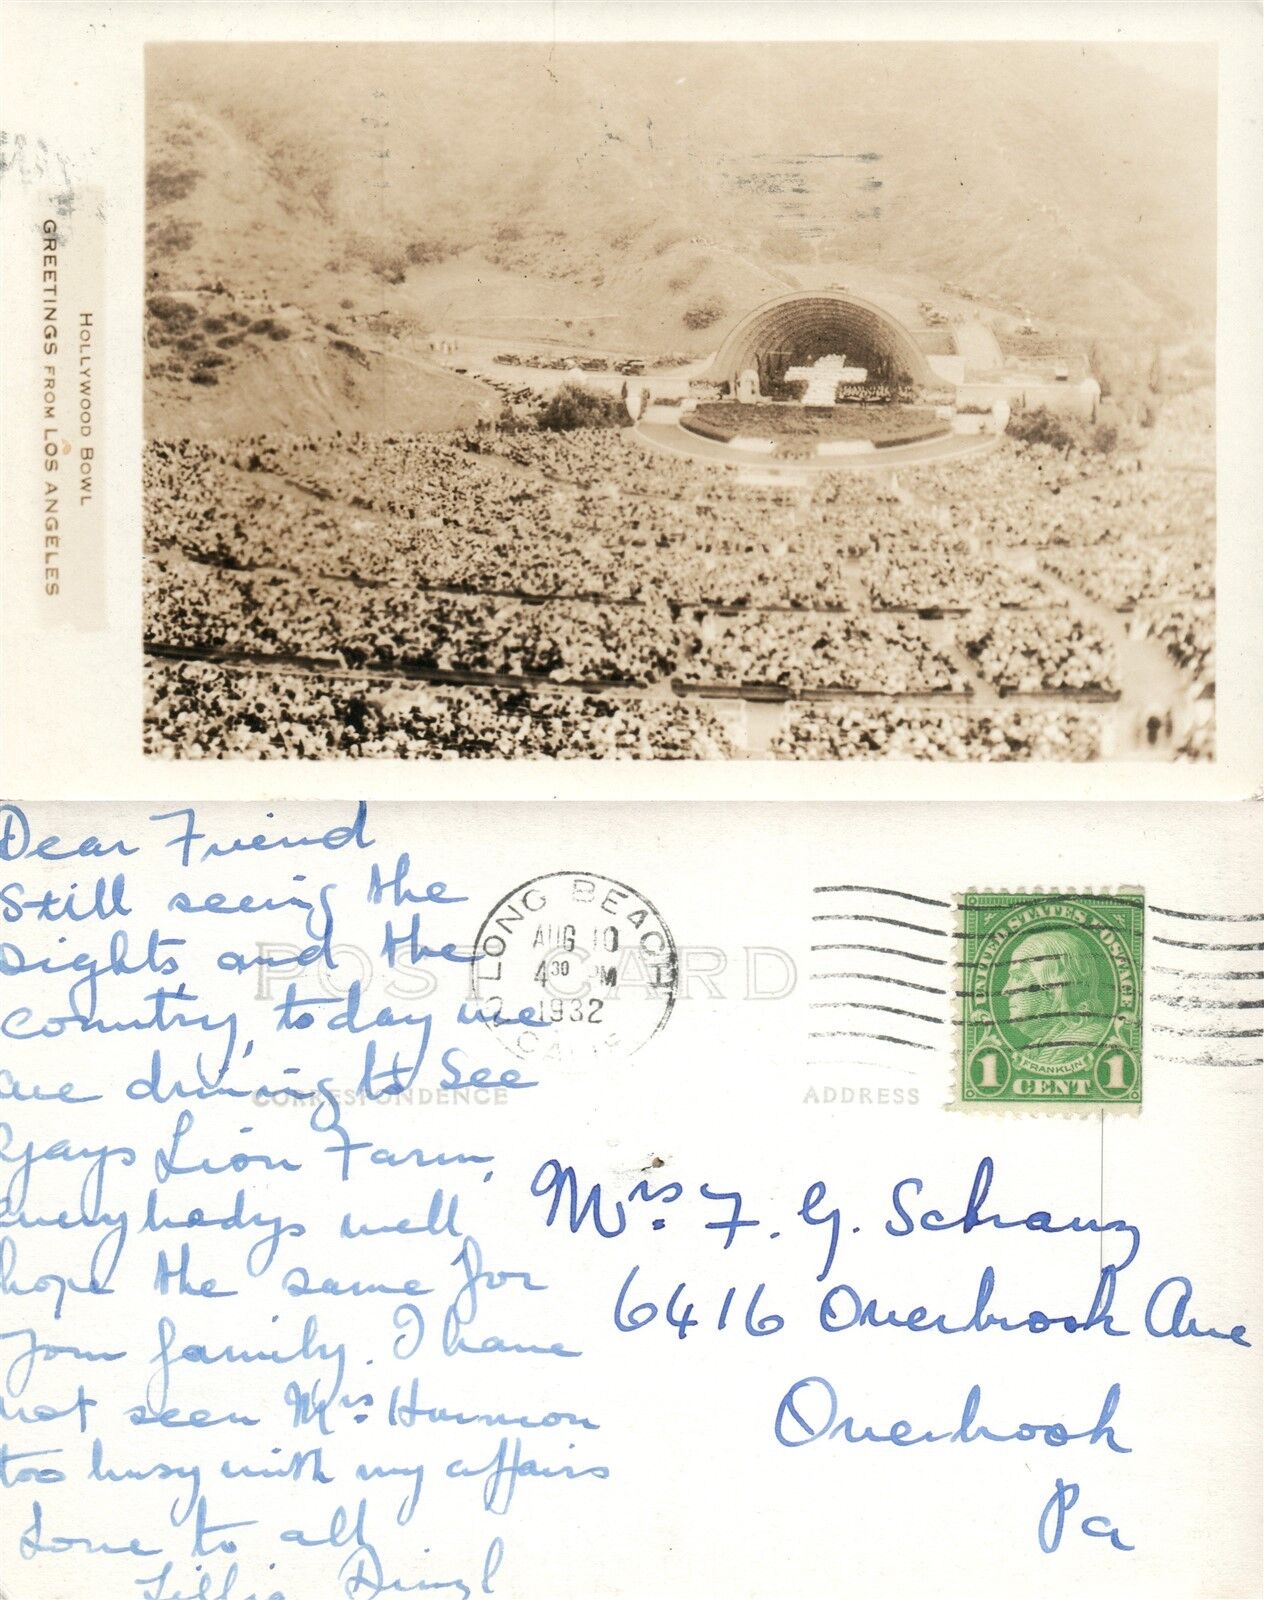 HOLLYWOOD BOWL
GREETINGS FROM LOS ANGELES
Dear Friend
Still seeing the
sights, and the
country, today we
are driving to see
Gays Lion Farm,
everybodys well
hope the same for
your family. I have
not seen Mrs. Harmon
too busy with my affairs
Love to all
Lillie
POST CARD
CORRESPONDENCE
ADDRESS
LONG BEACH
AUG 10
4 30 PM
1932
CALIF
UNITED STATES POSTAGE
FRANKLIN
1 CENT 1
Mrs. F. G. Schranz
6416 Overbrook Ave
Overbrook
Pa